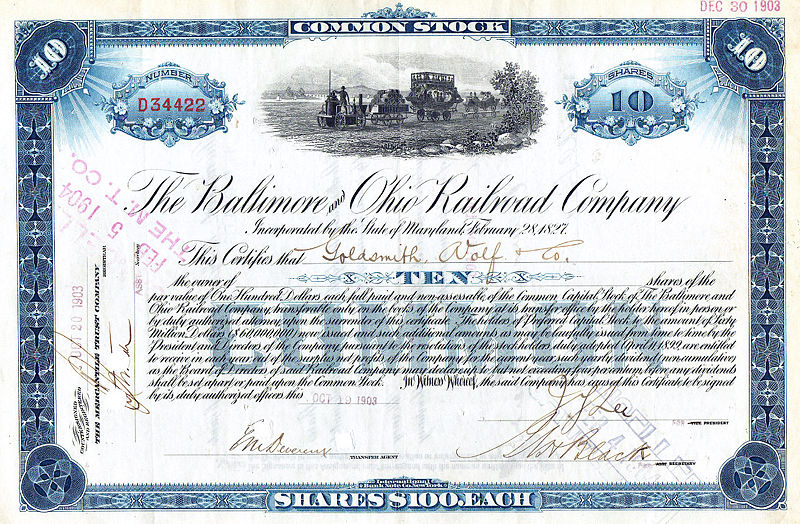 DEC 30 1903
COMMON STOCK
10
10
NUMBER
D34422
SHARES
10
The Baltimore and Ohio Railroad Company
Incorporated by the State of Maryland, February 28, 1827.
This Certifies that Goldsmith, Wolf & Co.
the owner of TEN shares of the
par value of One Hundred Dollars each full paid and non-assessable, of the Common Capital Stock of The Baltimore and
Ohio Railroad Company, transferable only on the books of the Company at its transfer office by the holder hereof in person or
by duly authorized attorney, upon the surrender of this certificate. The holders of Preferred Capital Stock to the amount of Sixty
Million Dollars
President and Directors of the Company, pursuant to the resolutions of the stockholders duly adopted April 11, 1899, are entitled
to receive in each year out of the surplus net profits of the Company for the current year such yearly dividend (non-cumulative)
as the Board of Directors of said Railroad Company may declare up to but not exceeding four per centum, before any dividends
shall be set apart or paid upon the Common Stock. In Witness Whereof, the said Company has caused this Certificate to be signed
by its duly authorized officers this OCT 19 1903
VICE PRESIDENT
TRANSFER AGENT
ASST SECRETARY
International
Bank Note Co. New York
SHARES $100. EACH
COUNTERSIGNED
AND REGISTERED
OCT 20 1903
THE MERCANTILE TRUST COMPANY
REGISTRAR
FEB 5 1904
THE M. T. CO.